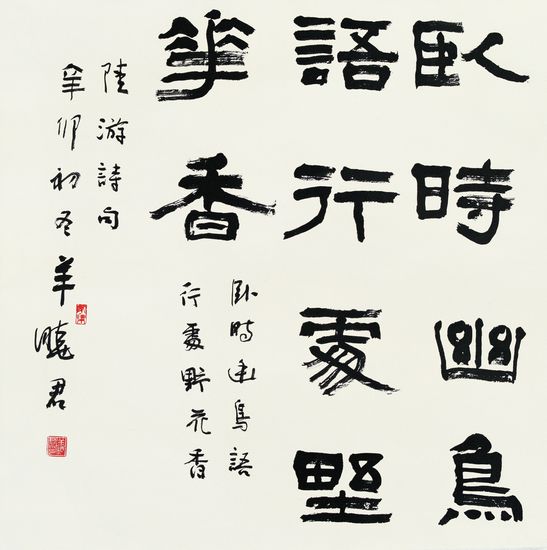 臥時幽鳥
語行處野
華香
臥時幽鳥語
行處野花香
陸游詩句
辛卯初冬羊曉君